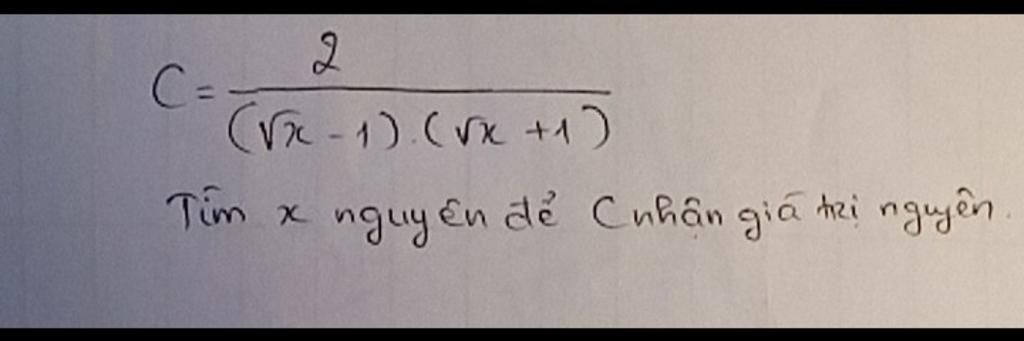 C = 2 / (√x - 1).(√x + 1)
Tìm x nguyên để C nhận giá trị nguyên.